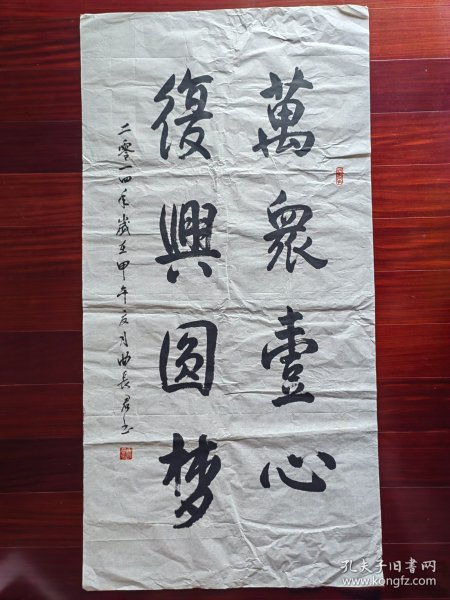 萬眾壹心
復興圆梦
二零一四年歲在甲午夏月曲長君书
孔夫子旧书网
www.kongfz.com